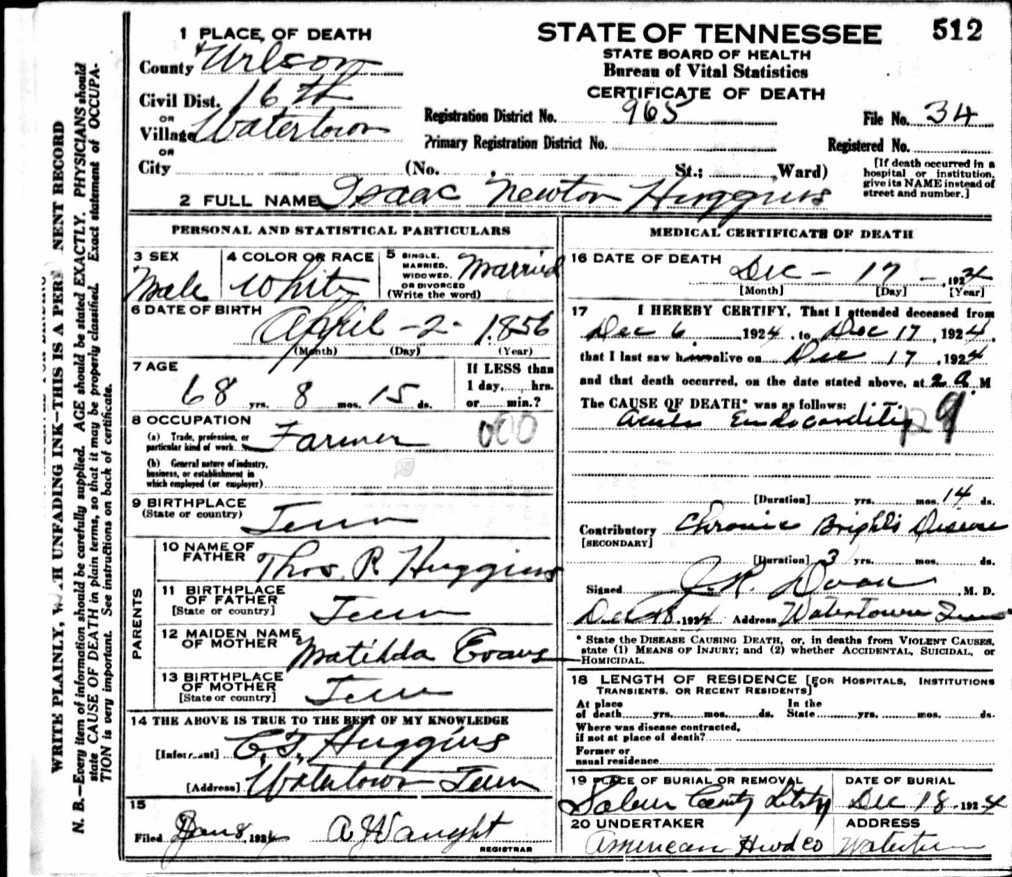 STATE OF TENNESSEE
512
STATE BOARD OF HEALTH
Bureau of Vital Statistics
CERTIFICATE OF DEATH
1 PLACE OF DEATH
County Wilson
Civil Dist. 16th
OR
Village Watertown
OR
City (No. , St.; Ward)
Registration District No. 965
File No. 34
Primary Registration District No.
Registered No.
[If death occurred in a
hospital or institution,
give its NAME instead of
street and number.]
2 FULL NAME Isaac Newton Huggins
PERSONAL AND STATISTICAL PARTICULARS
3 SEX
Male
4 COLOR OR RACE
White
5 SINGLE,
MARRIED,
WIDOWED,
OR DIVORCED
(Write the word)
Married
6 DATE OF BIRTH
April - 2 - 1856
(Month) (Day) (Year)
7 AGE
68 yrs. 8 mos. 15 ds.
If LESS than
1 day, hrs.
or min.?
8 OCCUPATION
(a) Trade, profession, or
particular kind of work
Farmer 000
(b) General nature of industry,
business, or establishment in
which employed (or employer)
9 BIRTHPLACE
(State or country)
Tenn
PARENTS
10 NAME OF
FATHER
Thos. R Huggins
11 BIRTHPLACE
OF FATHER
[State or country]
Tenn
12 MAIDEN NAME
OF MOTHER
Matilda Evans
13 BIRTHPLACE
OF MOTHER
[State or country]
Tenn
14 THE ABOVE IS TRUE TO THE BEST OF MY KNOWLEDGE
[Informant] C.T. Huggins
[Address] Watertown Tenn
15
Filed Jan 8, 192 A Waught
REGISTRAR
MEDICAL CERTIFICATE OF DEATH
16 DATE OF DEATH
Dec - 17 - , 1924
[Month] [Day] [Year]
17 I HEREBY CERTIFY, That I attended deceased from
Dec 6, 1924, to Dec 17, 1924,
that I last saw him alive on Dec 17, 1924
and that death occurred, on the date stated above, at 2 a M
The CAUSE OF DEATH* was as follows:
Acute Endocarditis
[Duration] yrs. mos. 14 ds.
Contributory Chronic Bright's Disease
[SECONDARY]
[Duration] 3 yrs. mos. ds.
Signed J.R. Doak M. D.
Dec 18, 1924 Address Watertown Tenn
* State the DISEASE CAUSING DEATH, or, in deaths from VIOLENT CAUSES,
state (1) MEANS OF INJURY; and (2) whether ACCIDENTAL, SUICIDAL, or
HOMICIDAL.
18 LENGTH OF RESIDENCE [FOR HOSPITALS, INSTITUTIONS
TRANSIENTS, OR RECENT RESIDENTS]
At place In the
of death yrs. mos. ds. State yrs. mos. ds.
Where was disease contracted,
if not at place of death?
Former or
usual residence
19 PLACE OF BURIAL OR REMOVAL
Salem
DATE OF BURIAL
Dec 18, 1924
20 UNDERTAKER
American Hwd Co
ADDRESS
Watertown
WRITE PLAINLY, WITH UNFADING INK—THIS IS A PERMANENT RECORD
N. B.—Every item of information should be carefully supplied. AGE should be stated EXACTLY. PHYSICIANS should
state CAUSE OF DEATH in plain terms, so that it may be properly classified. Exact statement of OCCUPA-
TION is very important. See instructions on back of certificate.